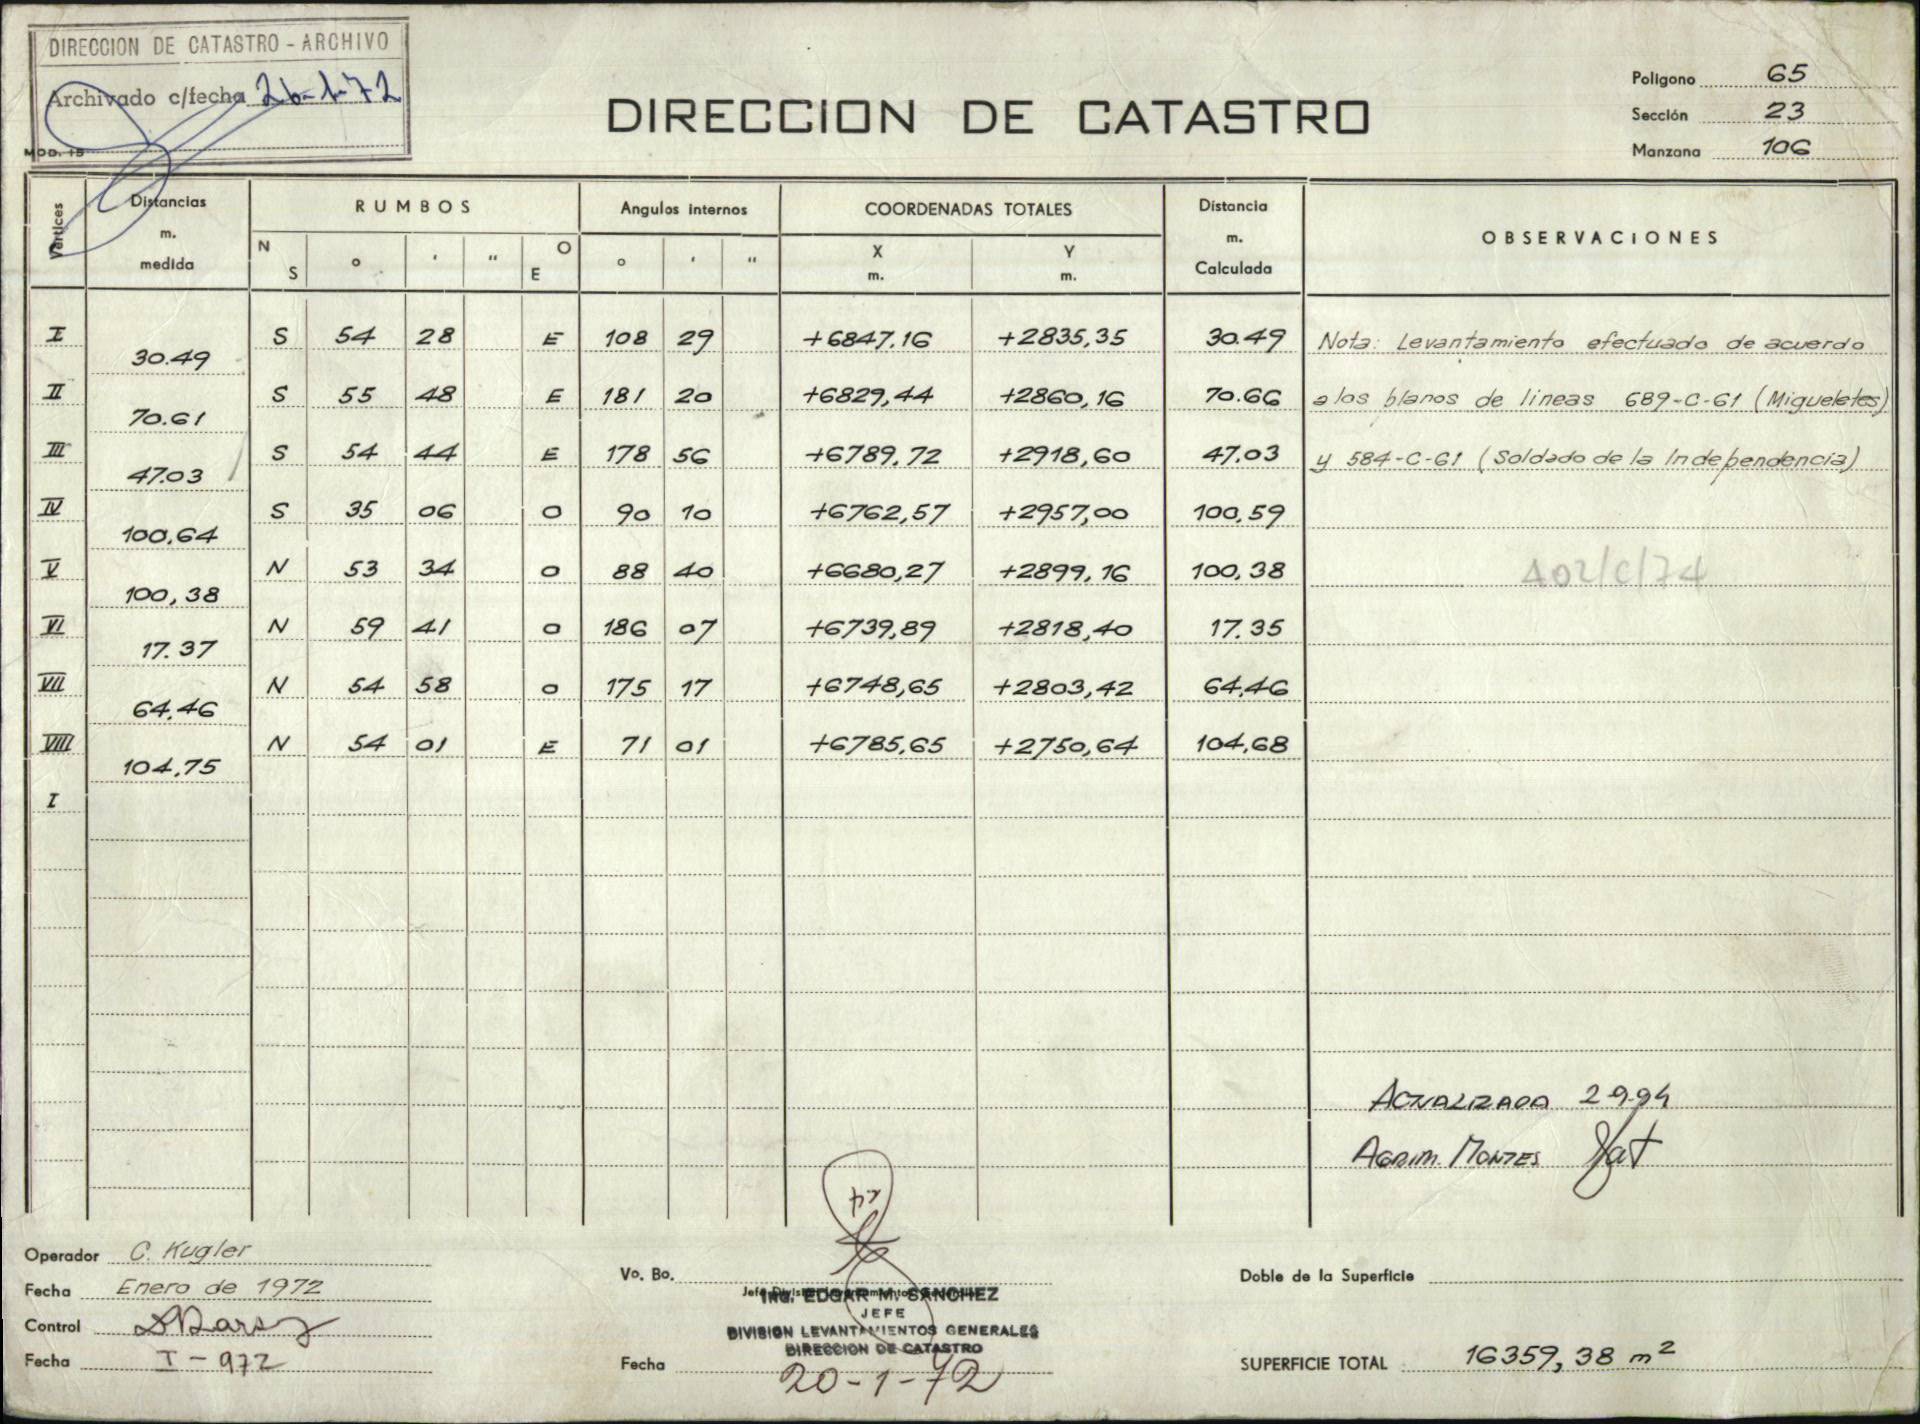 DIRECCION DE CATASTRO - ARCHIVO
Archivado c/fecha 26-1-72
MOD. 15
DIRECCION DE CATASTRO
Polígono 65
Sección 23
Manzana 106
Vertices Distancias m. medida RUMBOS Angulos internos COORDENADAS TOTALES Distancia m. Calculada OBSERVACIONES
N S ° ' " O E ° ' " X m. Y m.
I S 54 28 E 108 29 +6847,16 +2835,35 30.49 Nota: Levantamiento efectuado de acuerdo
30.49
II S 55 48 E 181 20 +6829,44 +2860,16 70.66 a los blanos de lineas 689-C-61 (Migueletes)
70.61
III S 54 44 E 178 56 +6789,72 +2918,60 47.03 y 584-C-61 (Soldado de la Independencia)
47.03
IV S 35 06 O 90 10 +6762,57 +2957,00 100,59
100,64
V N 53 34 O 88 40 +6680,27 +2899,16 100,38 402/C/74
100,38
VI N 59 41 O 186 07 +6739,89 +2818,40 17.35
17.37
VII N 54 58 O 175 17 +6748,65 +2803,42 64,46
64,46
VIII N 54 01 E 71 01 +6785,65 +2750,64 104,68
104,75
I
ACTUALIZADA 2 9.94
AGRIM. MONTES
Operador C. Kugler
Fecha Enero de 1972
Control
Fecha I-972
Vo. Bo.
Ing. EDGAR M. SANCHEZ
JEFE
DIVISION LEVANTAMIENTOS GENERALES
DIRECCION DE CATASTRO
Fecha 20-1-72
Doble de la Superficie
SUPERFICIE TOTAL 16359,38 m²